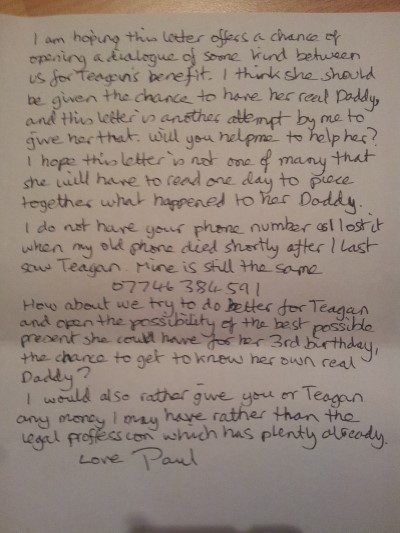 I am hoping this letter offers a chance of
opening a dialogue of some kind between
us for Teagan's benefit. I think she should
be given the chance to have her real Daddy,
and this letter is another attempt by me to
give her that. Will you help me to help her?
I hope this letter is not one of many that
she will have to read one day to piece
together what happened to her Daddy.
I do not have your phone number as I lost it
when my old phone died shortly after I last
saw Teagan. Mine is still the same
07746 384 591
How about we try to do better for Teagan
and open the possibility of the best possible
present she could have for her 3rd birthday,
the chance to get to know her own real
Daddy?
I would also rather give you or Teagan
any money I may have rather than the
legal proffession which has plenty already.
Love Paul